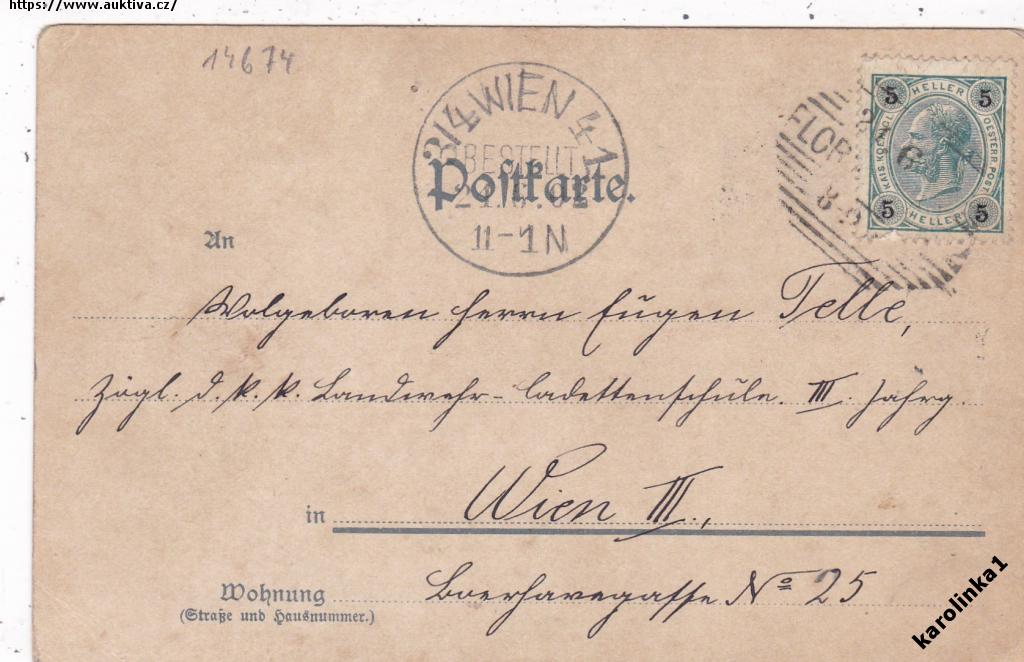 https://www.auktiva.cz/
14674
3/4 WIEN 41
BESTELLT
11-1N
Postkarte.
FLOR
5 HELLER 5
KAIS. KOENIGL. OESTERR. POST
5 HELLER 5
An
Wolgeboren Herrn Eugen Telle,
Zögl. d. k. k. Landwehr-Cadettenschule. III. Jahrg.
in Wien III.,
Wohnung Boerhavegasse No 25
(Straße und Hausnummer.)
karolinka1